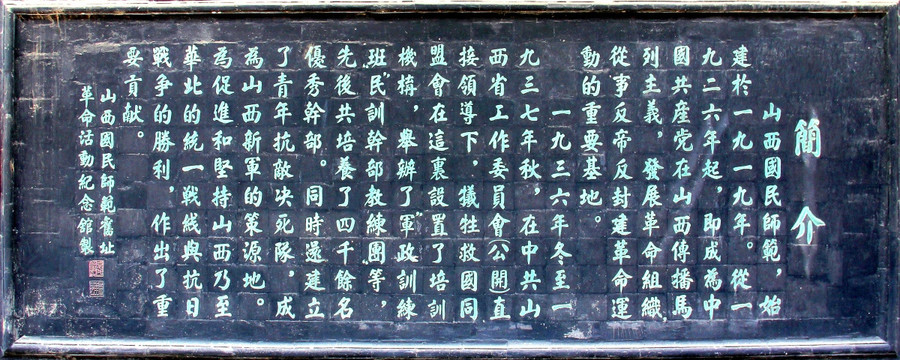 簡介
山西國民師範，始
建於一九一九年。從一
九二六年起，即成為中
國共産党在山西傳播馬
列主義，發展革命組織，
從事反帝反封建革命運
動的重要基地。
一九三六年冬至一
九三七年秋，在中共山
西省工作委員會公開直
接領導下，犠牲救國同
盟會在這裏設置了培訓
機構，舉辦了“軍政訓練
班”“民訓幹部教練團”等，
先後共培養了四千餘名
優秀幹部。同時還建立
了青年抗敵决死隊，成
為山西新軍的策源地。
為促進和堅持山西乃至
華北的統一戰线與抗日
戰争的勝利，作出了重
要貢献。
山西國民師範舊址
革命活動紀念館製